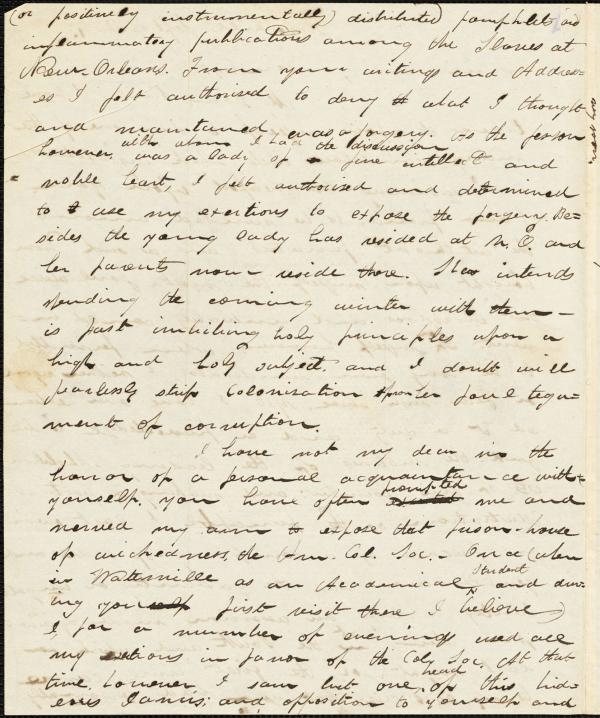 (or positively instrumentally) distributed pamphlets and
inflammatory publications among the Slaves at
New-Orleans. From your writings and Address=
es I felt authorised to deny what I thought
and maintained was a forgery. As the person
with whom I had the discussion
however, was a lady of fine intellect and
noble heart, I felt authorised and determined
to use my exertions to expose the forgery. Be=
sides the young lady has resided at N. O. and
her parents now reside there. She intends
spending the coming winter with them—
is fast imbibing holy principles upon a
high and holy subject, and I doubt will
fearlessly strip Colonization of her foul tegu-
ment of corruption.
I have not my dear in the
honor of a personal acquaintance with=
yourself. you have often prompted me and
nerved my arm to expose that prison-house
of wickedness, the Am. Col. Soc. - Once (when
in Waterville as an Academical Student and dur-
ing your first visit there I believe)
I for a number of evenings used all
my exertions in favor of the Col. Soc. At that
time, however I saw but one head of this hid-
eous Janus; and opposition to yourself and